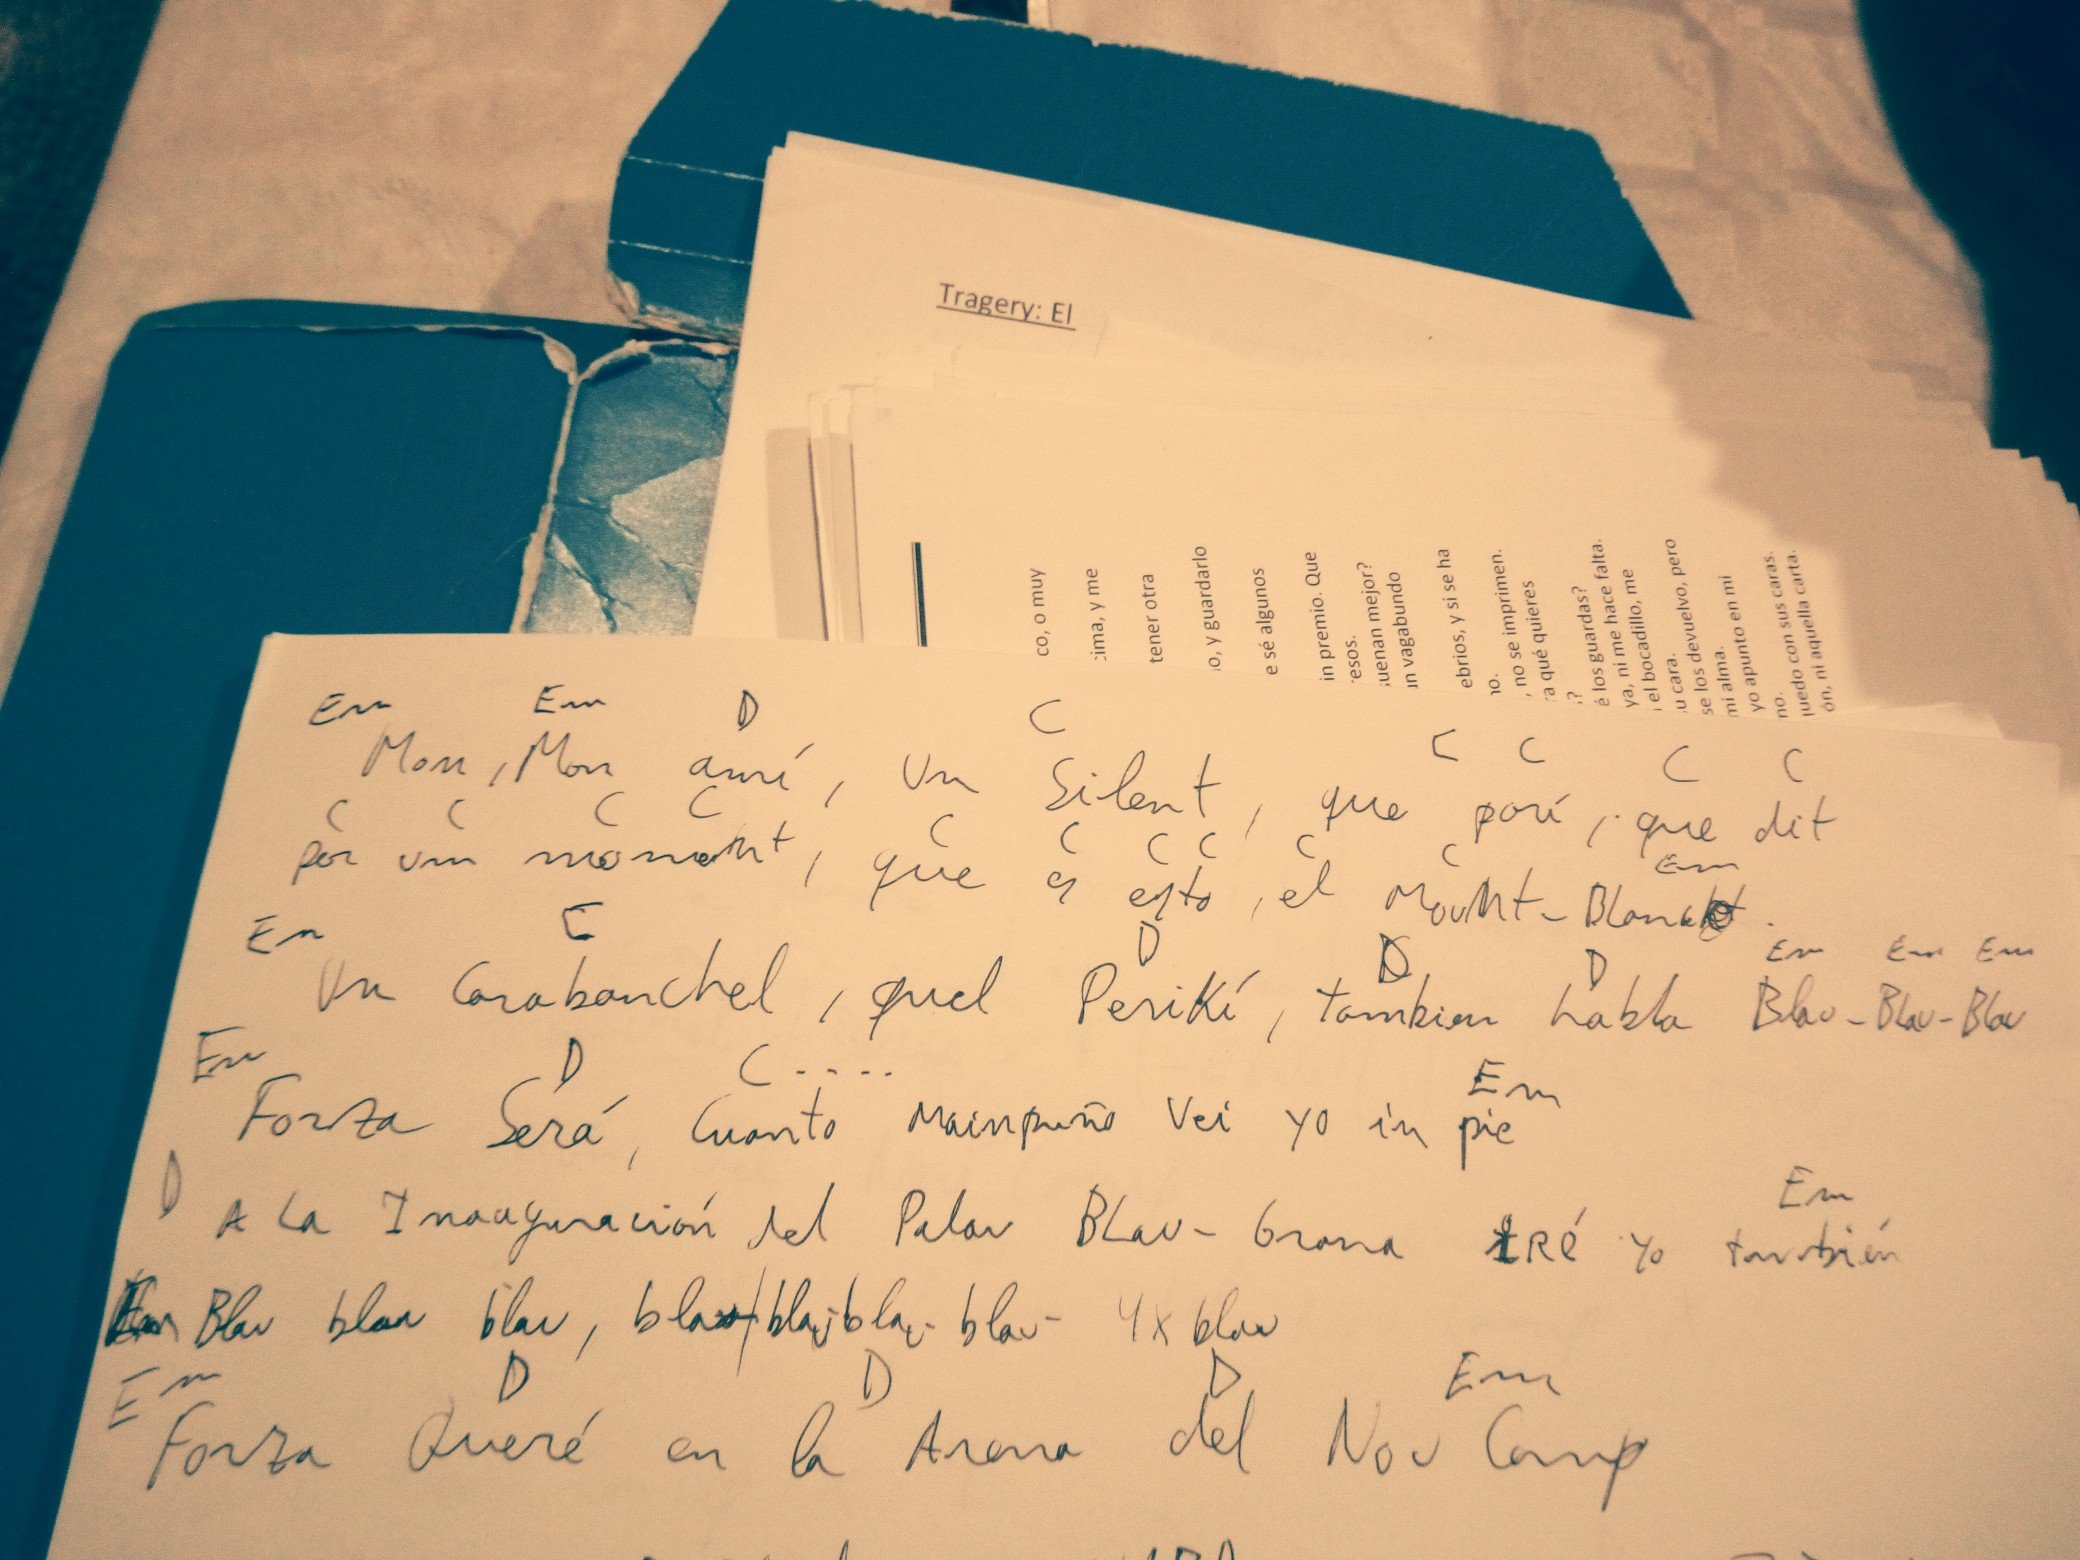 Tragery: El
co, o muy
cima, y me
tener otra
o, y guardarlo
e sé algunos
in premio. Que
esos.
uenan mejor?
un vagabundo
ebrios, y si se ha
no.
, no se imprimen.
a qué quieres
?
é los guardas?
ya, ni me hace falta.
el bocadillo, me
u cara.
se los devuelvo, pero
mi alma.
yo apunto en mi
no.
uedo con sus caras.
ón, ni aquella carta.
Em Em D C C C C C
Mon, Mon amí, un Silent, que porí, que dit
C C C C C C C C C C Em
por um moment, que es esto, el Mount-Blanc.
Em C D D D Em Em Em
Un Carabanchel, quel Perikí, tambien habla Blau-Blau-Blau
Em D C.... Em
Forza Será, Cuanto Mainpuño Vei yo in pie
D Em
A La Inauguración del Palau BLau-Grana IRé yo también
Em Blau blau blau, blau blau-blau-blau- 4x blau
Em D D D Em
Forza Queré en la Arena del Nou Camp